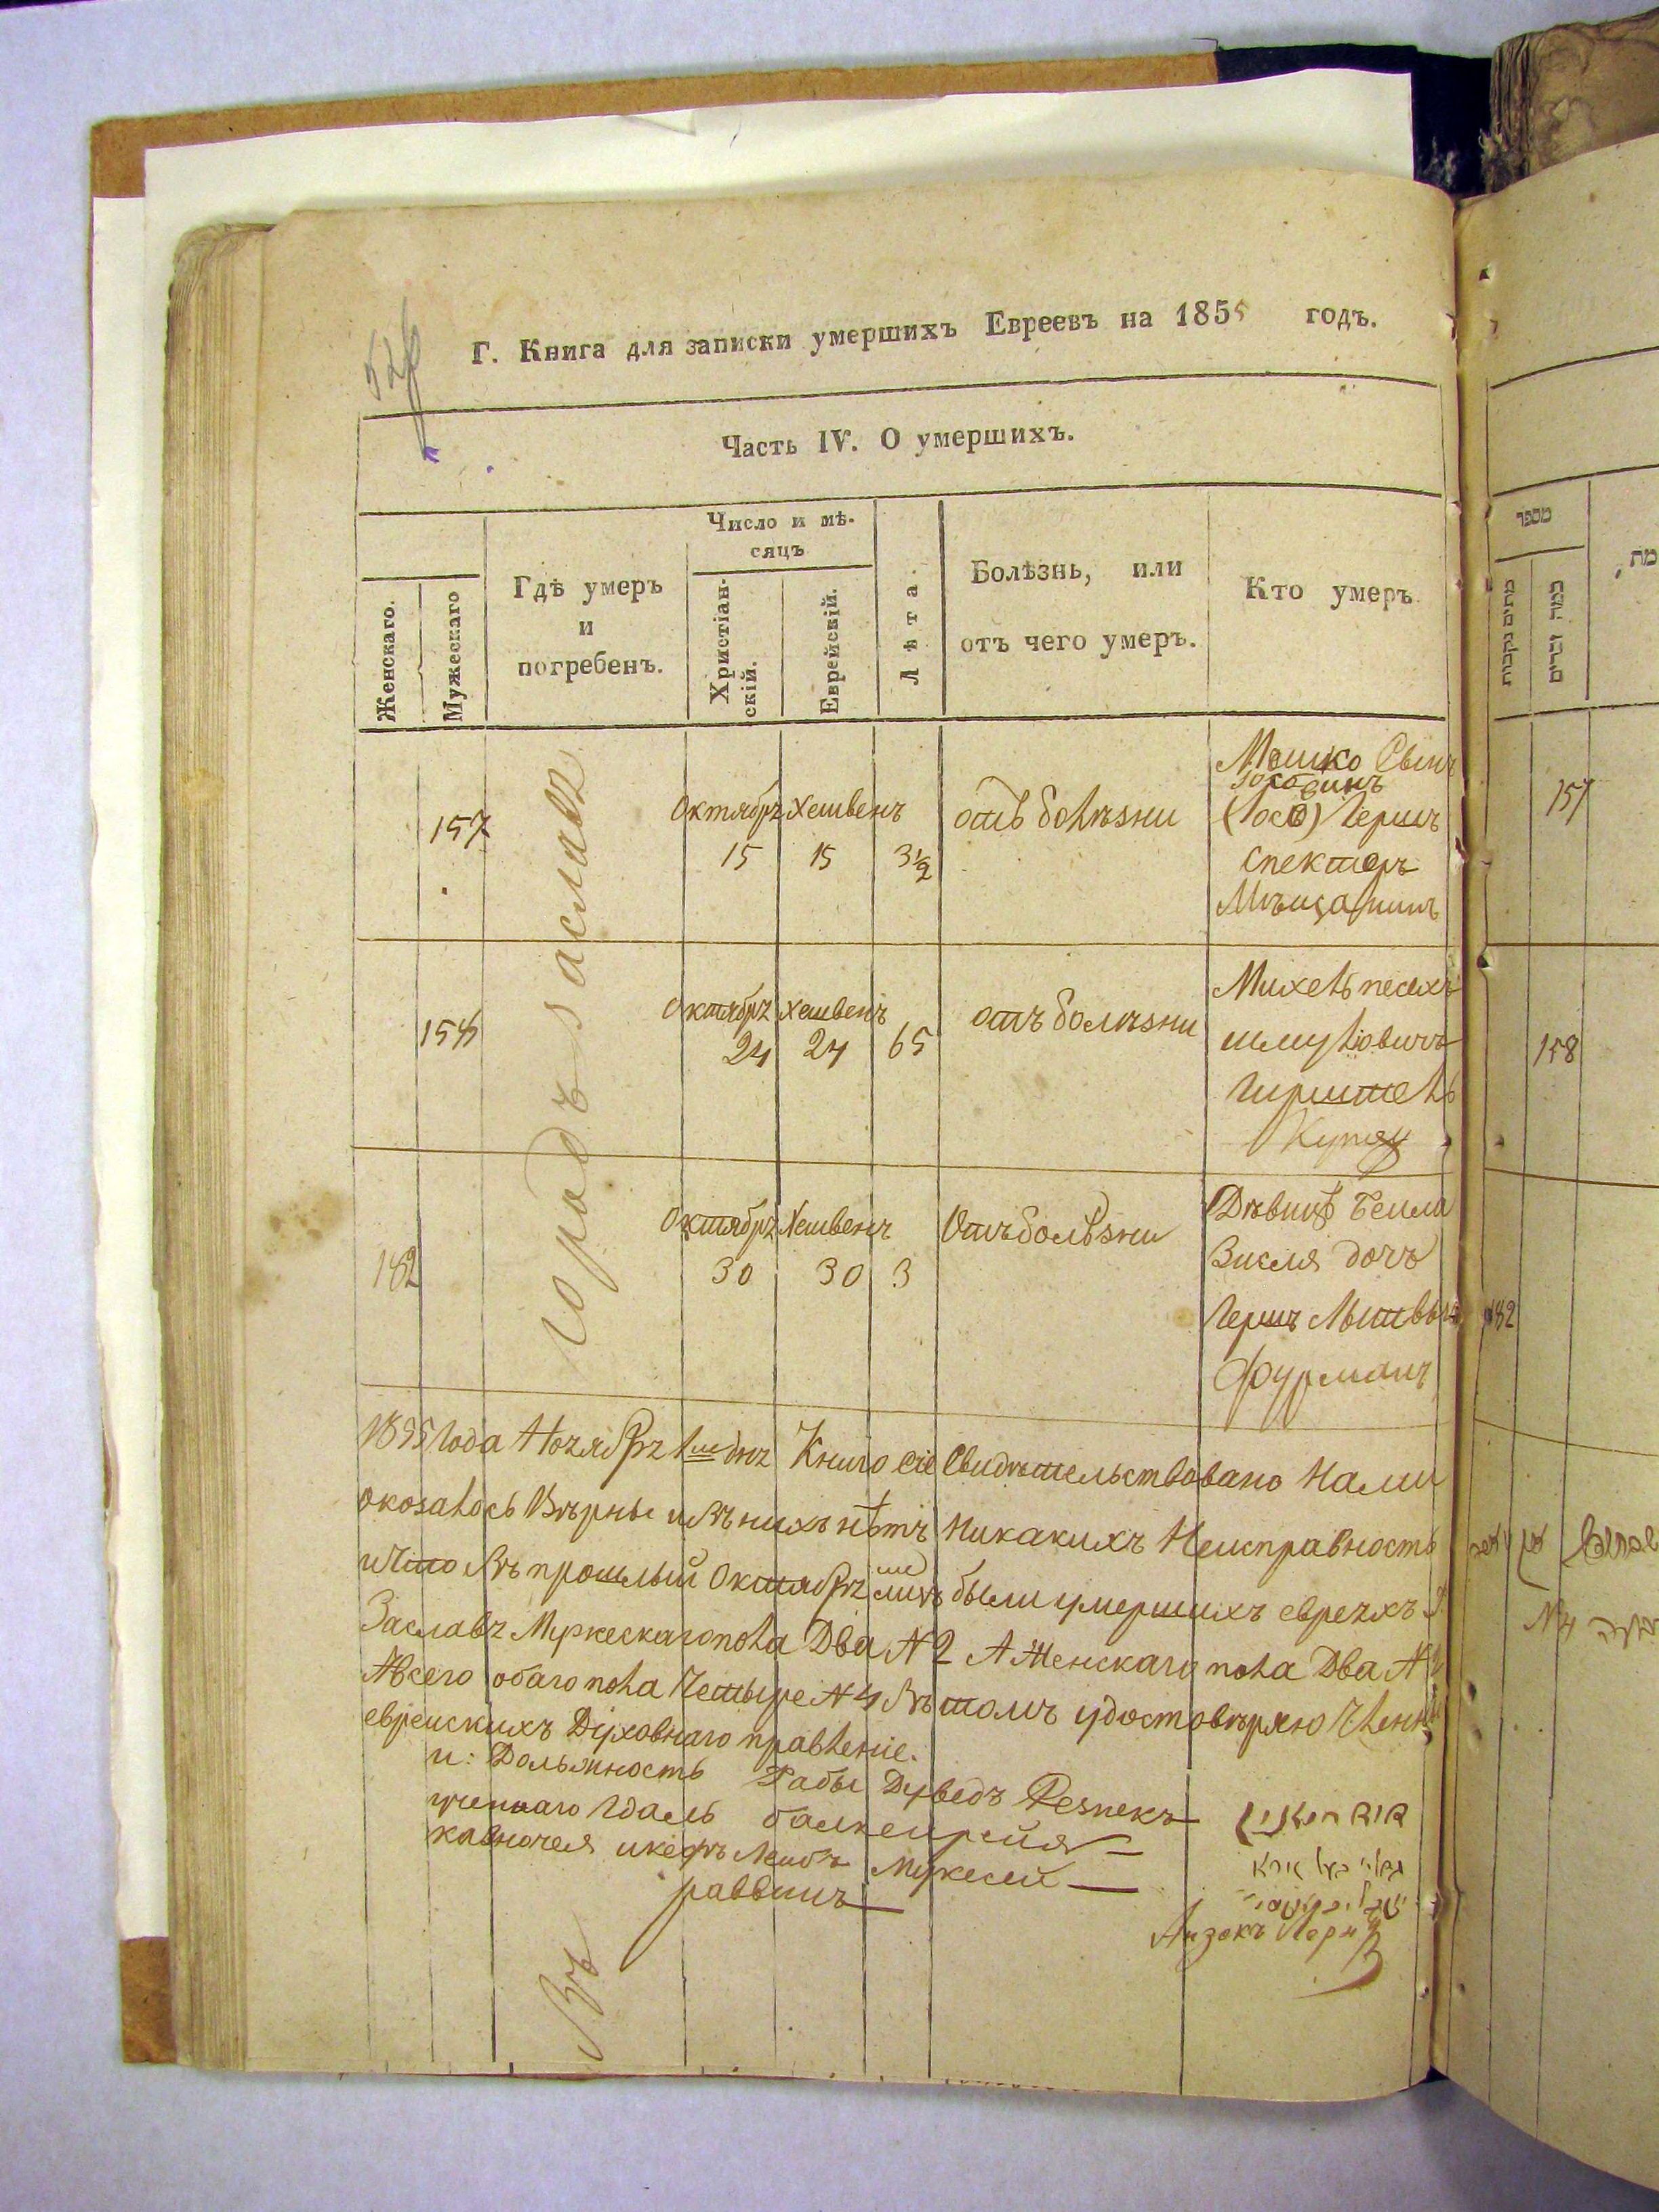 Г. Книга для записки умершихъ Евреевъ на 1855 годъ.
Часть IV. О умершихъ.
Женскаго.
Мужескаго
Гдѣ умеръ
и
погребенъ.
Число и мѣ-
сяцъ
Христіан-
скій.
Еврейскій.
Лѣта.
Болѣзнь, или
отъ чего умеръ.
Кто умеръ
Въ городъ заславъ
157
Октябръ Хешвенъ
15 15 3½
отъ болѣзни
Мошко Сынъ
(Іосъ) Гершъ
Спекторъ
Мѣщанинъ
158
Октябръ хешвенъ
24 24 65
отъ болѣзни
Михель песехъ
шмулiовичъ
Купец
182
Октябръ Хешвенъ
30 30 3
Отъ болѣзни
Дѣвицѣ Бейла
дочъ
Гершъ
Фурманъ
1855 Года Ноября 1го дня Книга сіе Свидѣтельствовано Нами
оказалось Вѣрны и въ нихъ нѣтъ Никакихъ Неисправность
и что въ прошлый Октябръ были умершихъ евреехъ
Заславъ Мужескаго пола Два №2 А Женскаго пола Два №
Авсего обаго пола Четыре №4 въ томъ удостовѣряю Члены
еврейскихъ Духовнаго правленіе.
и: Должность Рабы Дуведъ Резнекъ
ученаго Гдаль
Лейбъ
раввинъ
Айзекъ
מספר
מתים נקבות
כמה זכרים
157
158
182
№4